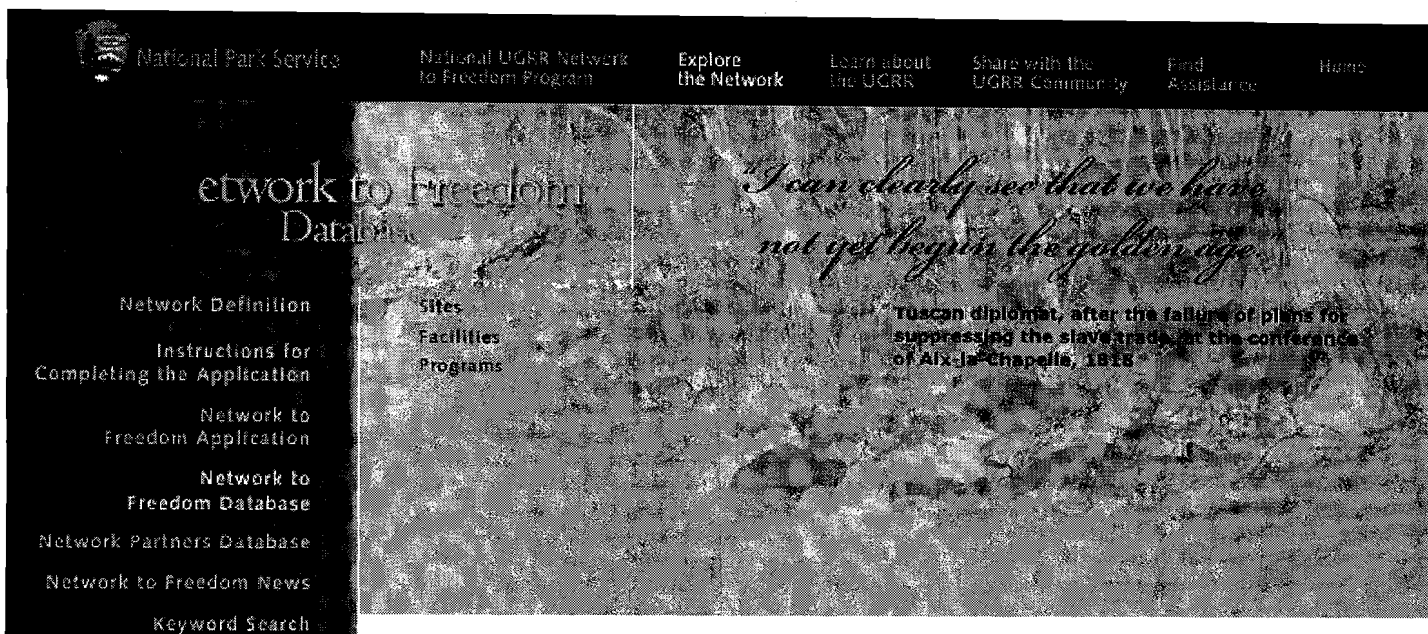 National Park Service
National UGRR Network
to Freedom Program
Explore
the Network
Learn about
the UGRR
Share with the
UGRR Community
Find
Assistance
Home
etwork to Freedom
Database
"I can clearly see that we have
not yet begun the golden age.
Network Definition
Instructions for
Completing the Application
Network to
Freedom Application
Network to
Freedom Database
Network Partners Database
Network to Freedom News
Keyword Search
Sites
Facilities
Programs
Tuscan diplomat, after the failure of plans for
suppressing the slave trade, at the conference
of Aix-la-Chapelle, 1818